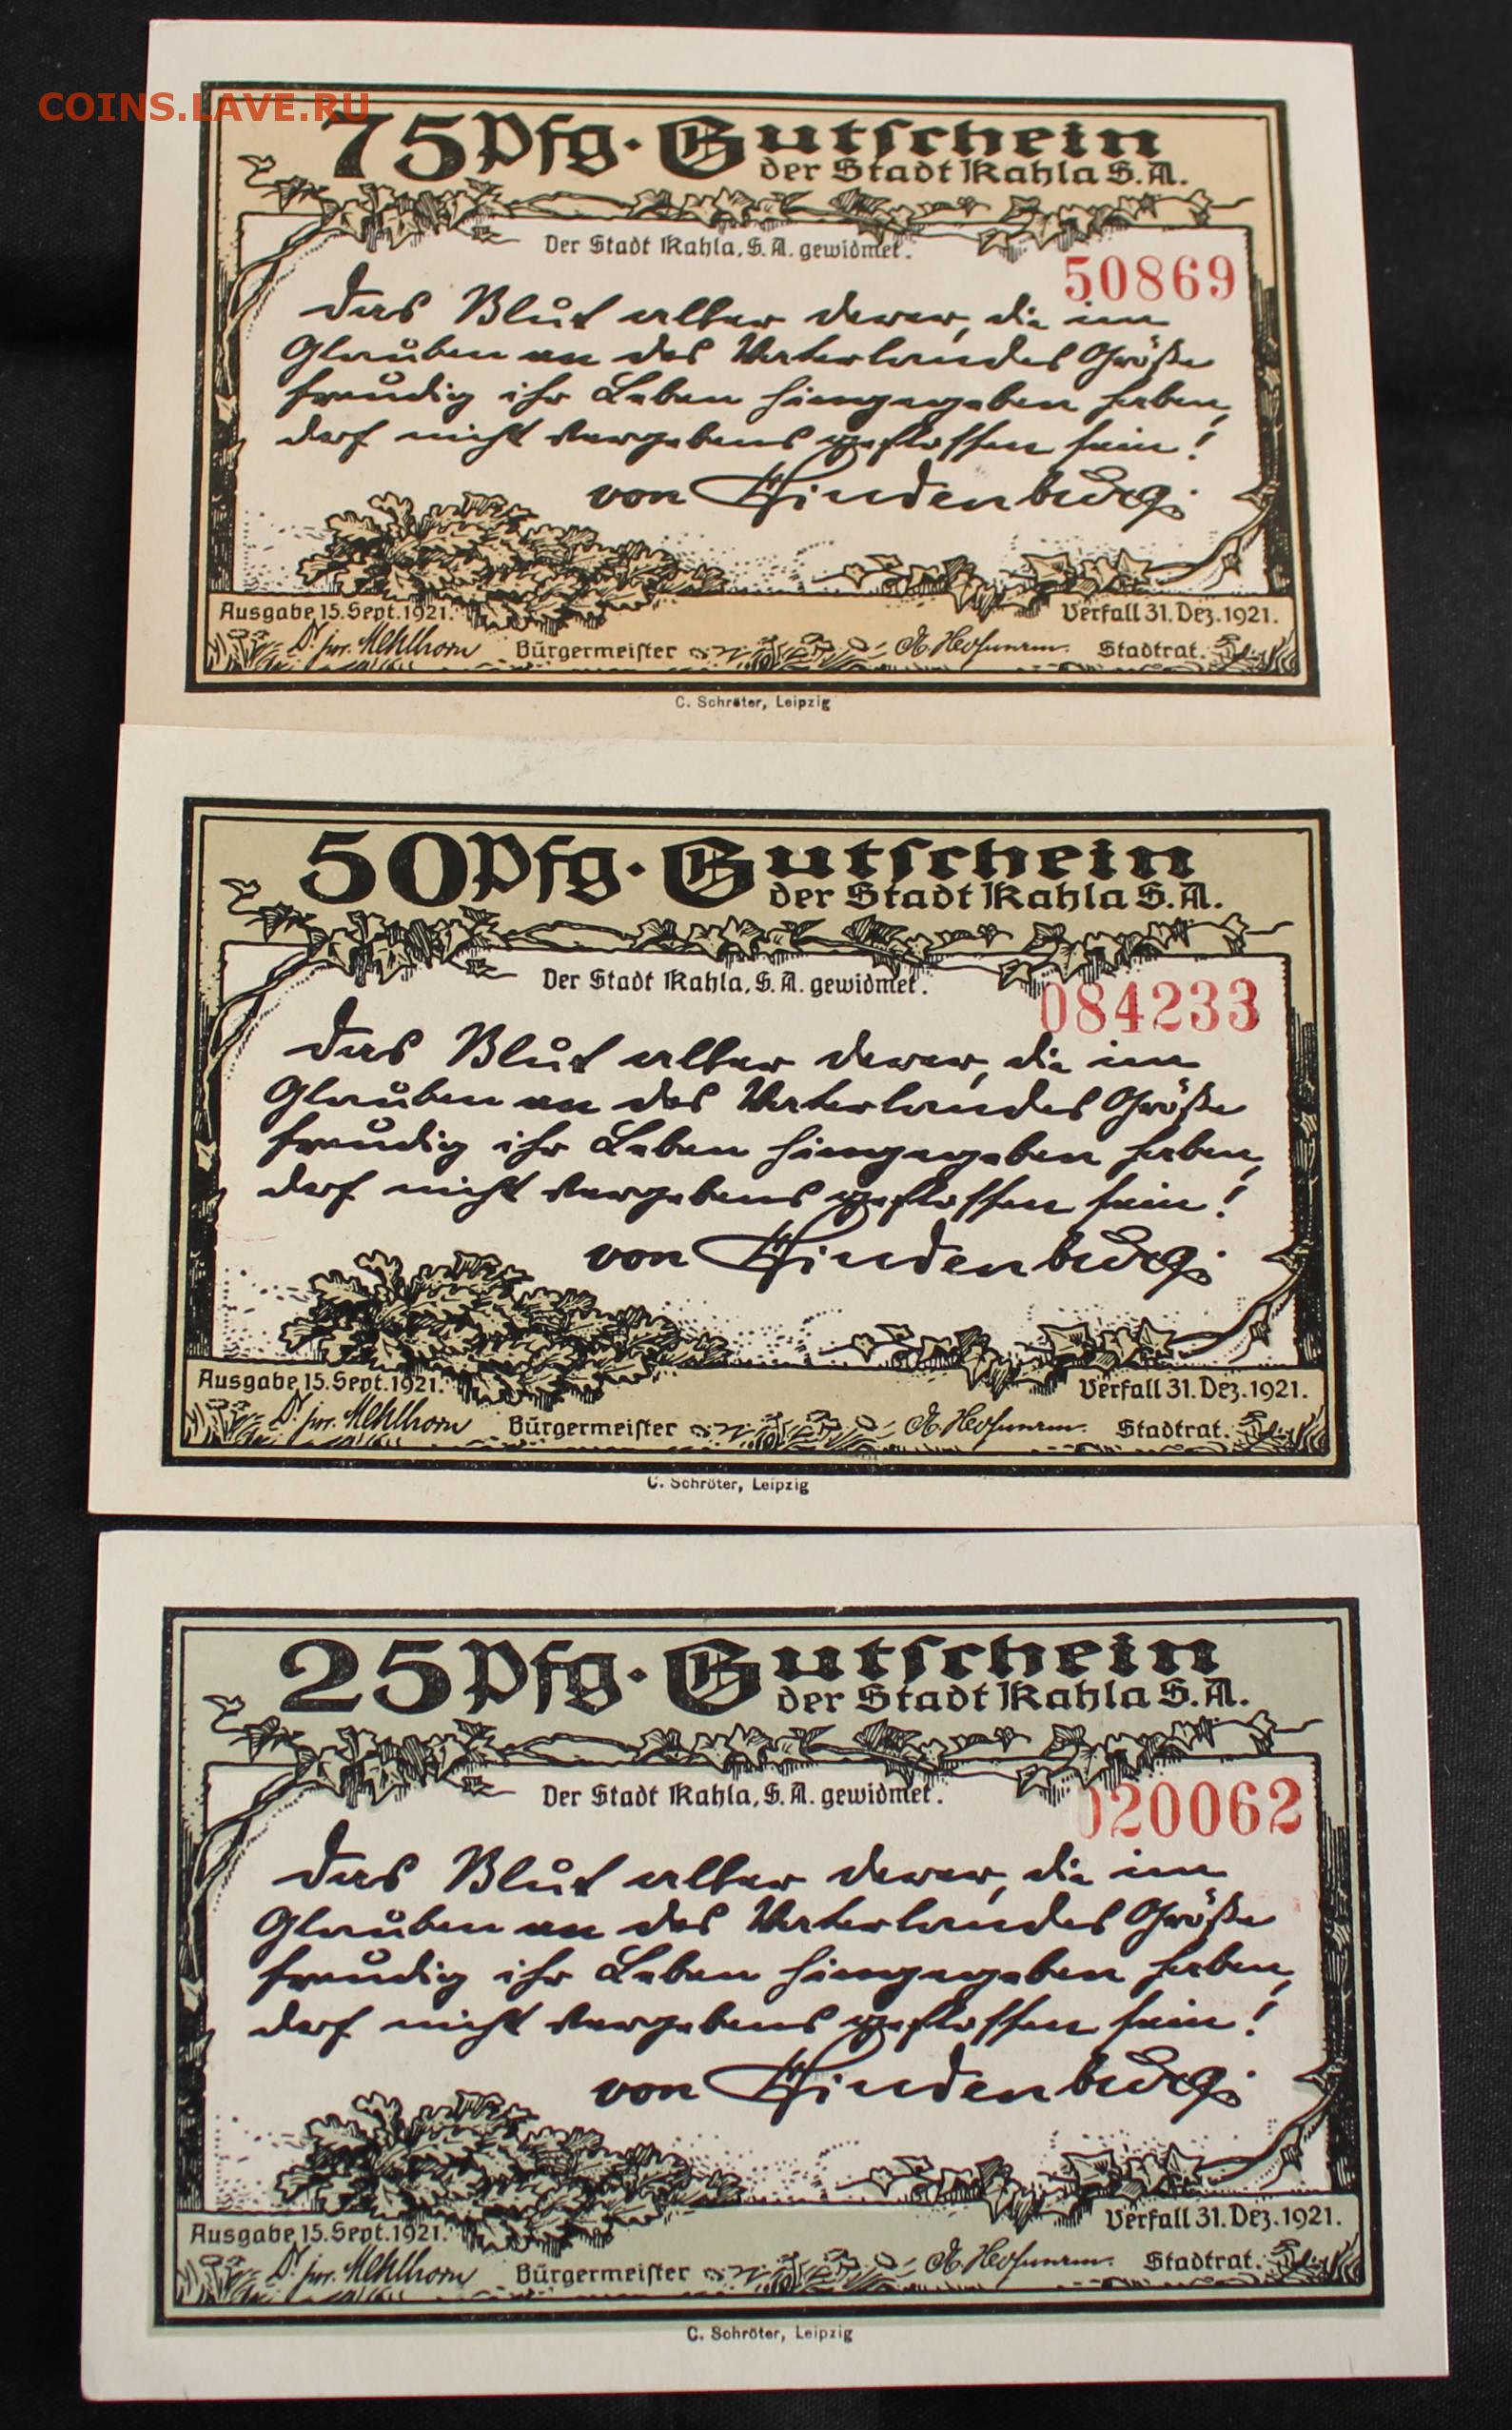 COINS.LAVE.RU
75 Pfg. Gutschein
der Stadt Kahla S.A.
Der Stadt Kahla, S.A. gewidmet.
50869
Das Blut aller derer, die im
Glauben an des Vaterlandes Größe
freudig ihr Leben hingegeben haben,
darf nicht vergebens geflossen sein!
von Hindenburg.
Ausgabe 15. Sept. 1921.
Verfall 31. Dez. 1921.
Dr. jur. Mehlhorn Bürgermeister
Stadtrat.
C. Schröter, Leipzig
50 Pfg. Gutschein
der Stadt Kahla S.A.
Der Stadt Kahla, S.A. gewidmet.
084233
Das Blut aller derer, die im
Glauben an des Vaterlandes Größe
freudig ihr Leben hingegeben haben,
darf nicht vergebens geflossen sein!
von Hindenburg.
Ausgabe 15. Sept. 1921.
Verfall 31. Dez. 1921.
Dr. jur. Mehlhorn Bürgermeister
Stadtrat.
C. Schröter, Leipzig
25 Pfg. Gutschein
der Stadt Kahla S.A.
Der Stadt Kahla, S.A. gewidmet.
020062
Das Blut aller derer, die im
Glauben an des Vaterlandes Größe
freudig ihr Leben hingegeben haben,
darf nicht vergebens geflossen sein!
von Hindenburg.
Ausgabe 15. Sept. 1921.
Verfall 31. Dez. 1921.
Dr. jur. Mehlhorn Bürgermeister
Stadtrat.
C. Schröter, Leipzig